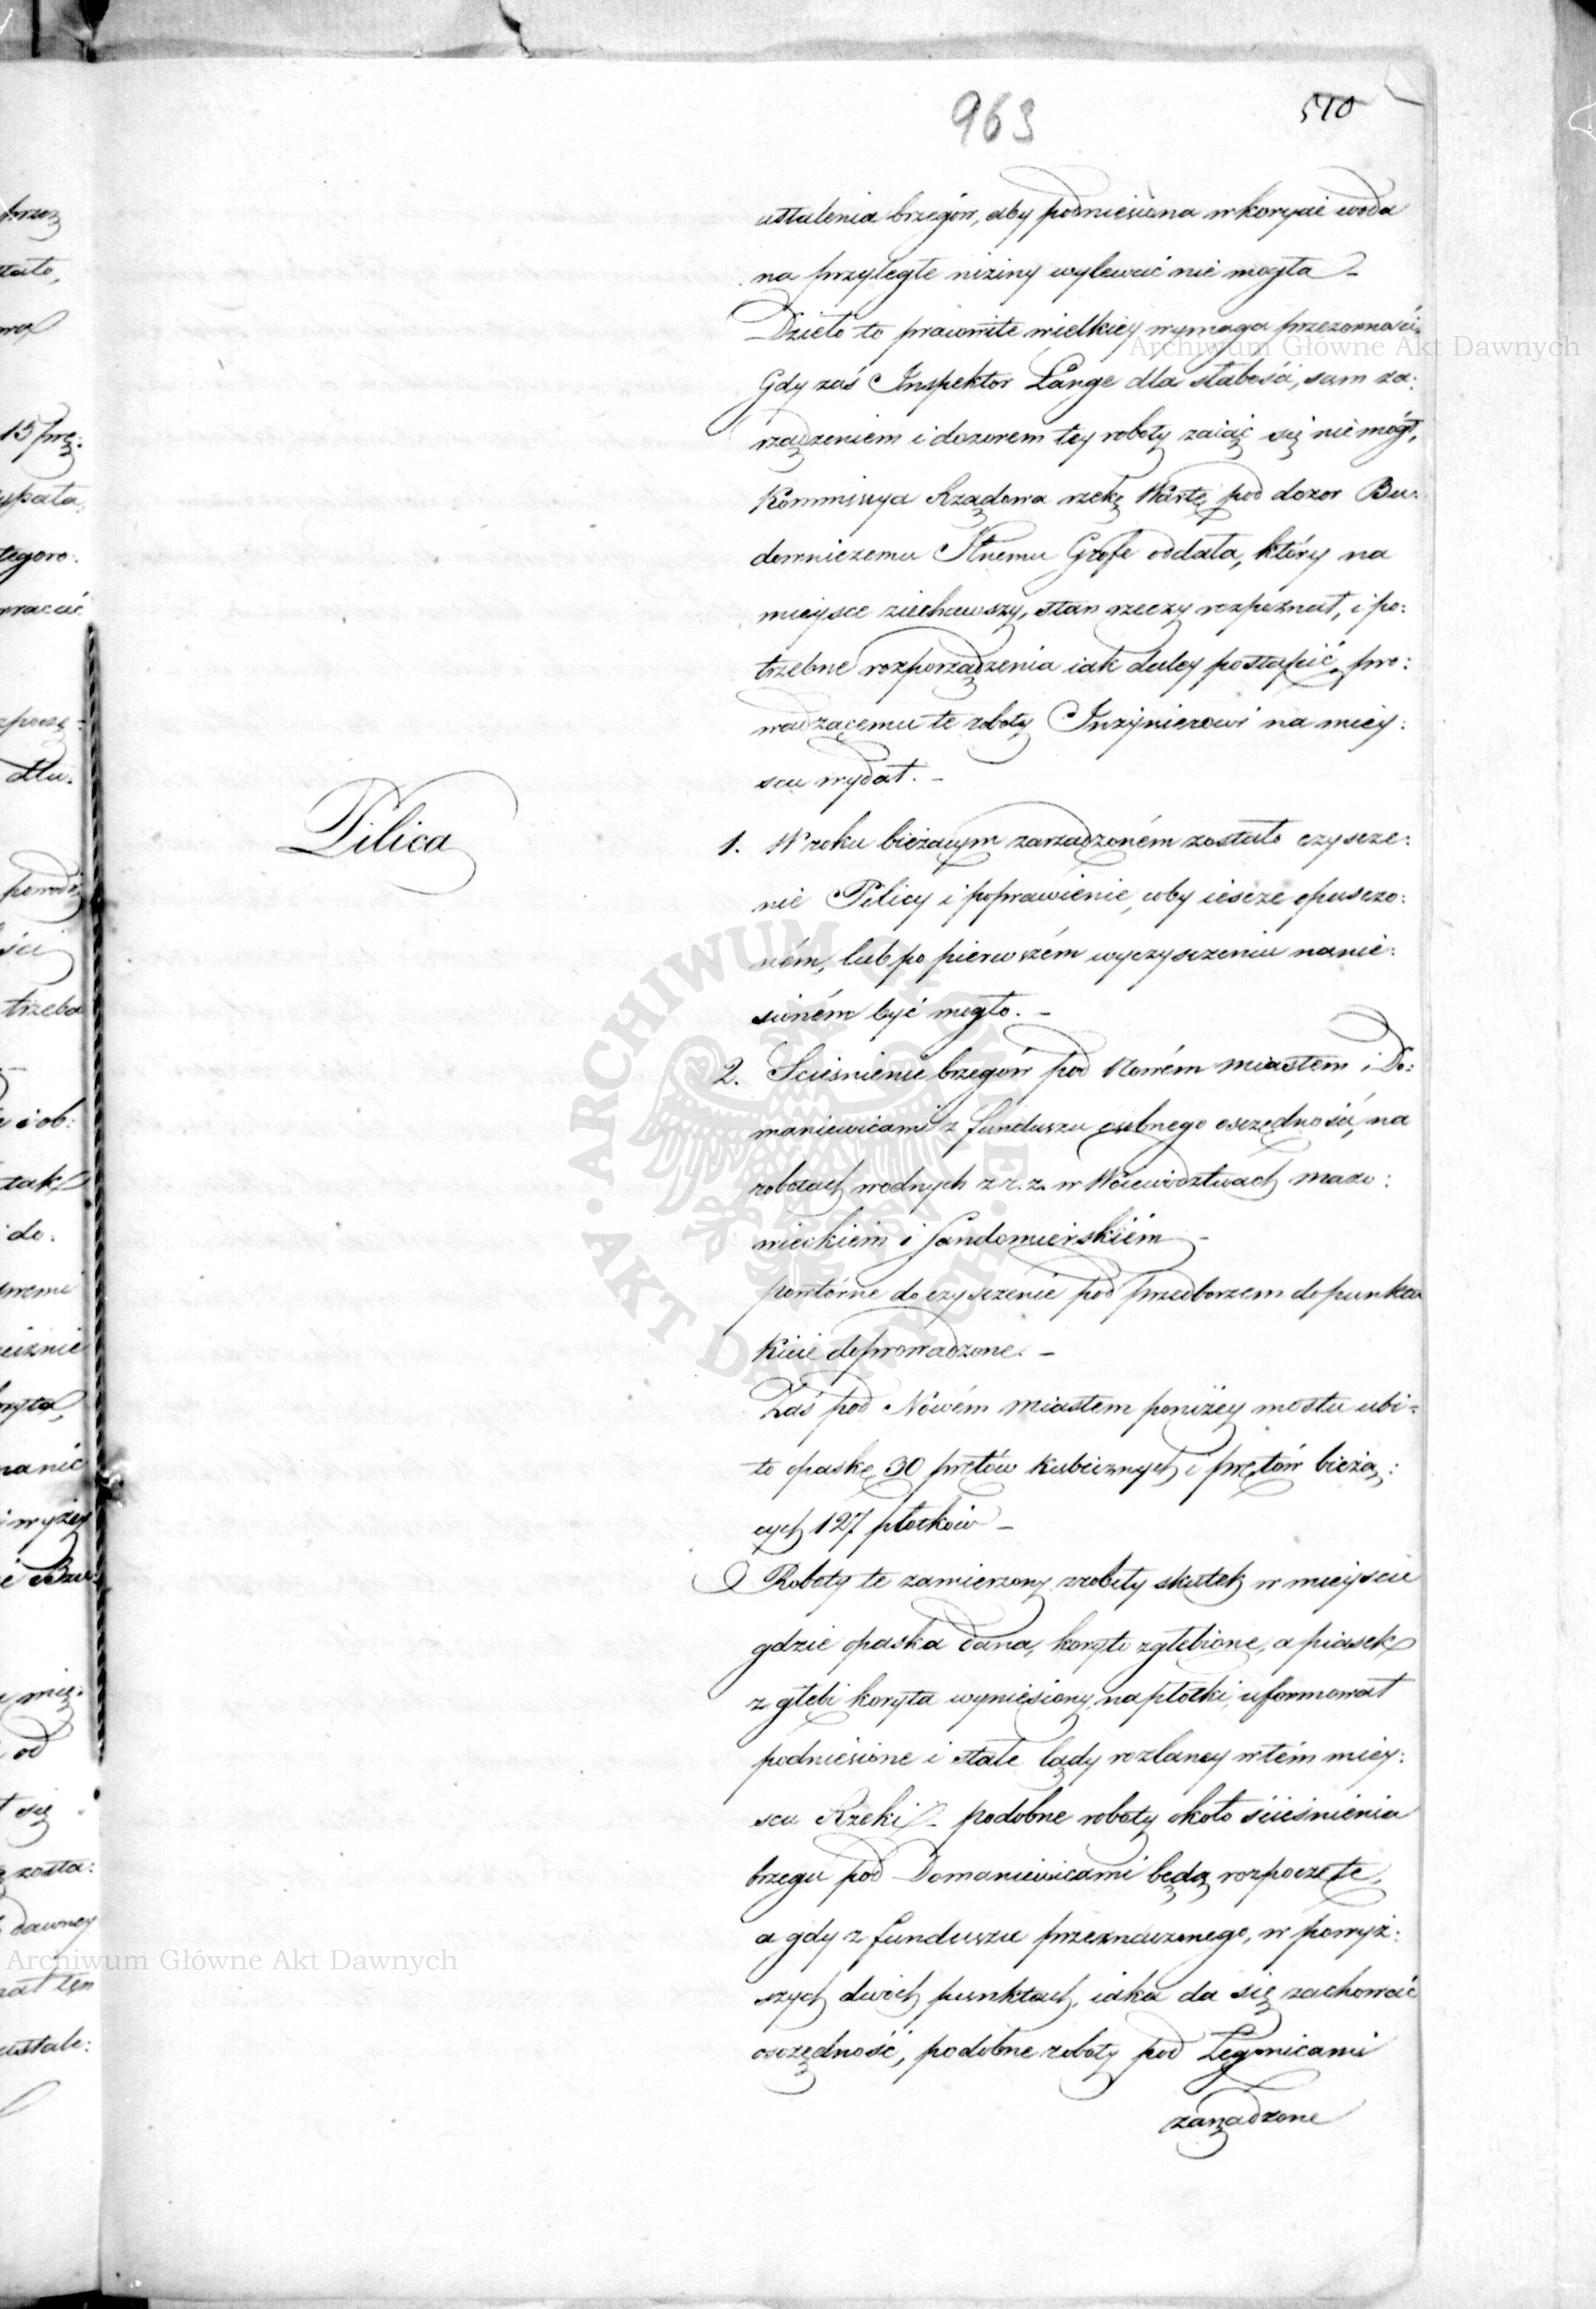 963
510
ustalenia brzegów, aby podniesiona w korycie woda
na przyległe niziny wylewać nie mogła –
Dzieło to prawdziwie wielkiey wymaga przezorności.
Gdy zaś Inspektor Lange dla słabości, sam za:
rządzeniem i dozorem tey roboty zaiąć się nie mógł,
Kommissya Rządowa rzekę Wartę pod dozor Bu:
downiczemu Jlnemu Groffe oddała, który na
mieysce ziechawszy, stan rzeczy rozpoznał, i po:
trzebne rozporządzenia iak daley postąpić, pro:
wadzącemu te roboty Inżynierowi na miey:
scu wydał. –
Pilica
1. W roku bieżącym zarządzoném zostało czyszcze:
nie Pilicy i poprawienie, coby iescze opusczo:
ném, lub po pierwszém wyczysczeniu nanie:
sioném być mogło. –
2. Scieśnienie brzegów pod Nowém miastem i Do:
maniewicami z funduszu osobnego osczędności, na
robotach wodnych z r. z. w Woiewództwach mazo:
wieckiém i Sandomierskiém –
powtórne doczysczenie pod przedborzem do punktu
Kiciė doprowadzone. –
Zaś pod Nowém miastem poniżey mostu ubi:
to opaskę 30 prętów kubicznych i prętów bieżą:
cych 127 płotków –
Roboty te zamierzony zrobiły skutek w mieyscu
gdzie opaska dana, koryto zgłębione, a piasek
z głębi koryta wyniesiony, na płotki, uformował
podniesione i stałe lądy rozlaney w tém miey:
scu Rzeki – podobne roboty około ścieśnienia
brzegu pod Domaniewicami będą rozpoczęte,
a gdy z funduszu przeznaczonego, w powyż:
szych dwóch punktach, iaka da się zachować
osczędność, podobne roboty pod Łęgonicami
zarządzone
Archiwum Główne Akt Dawnych
Archiwum Główne Akt Dawnych
ARCHIWUM GŁÓWNE · AKT DAWNYCH ·